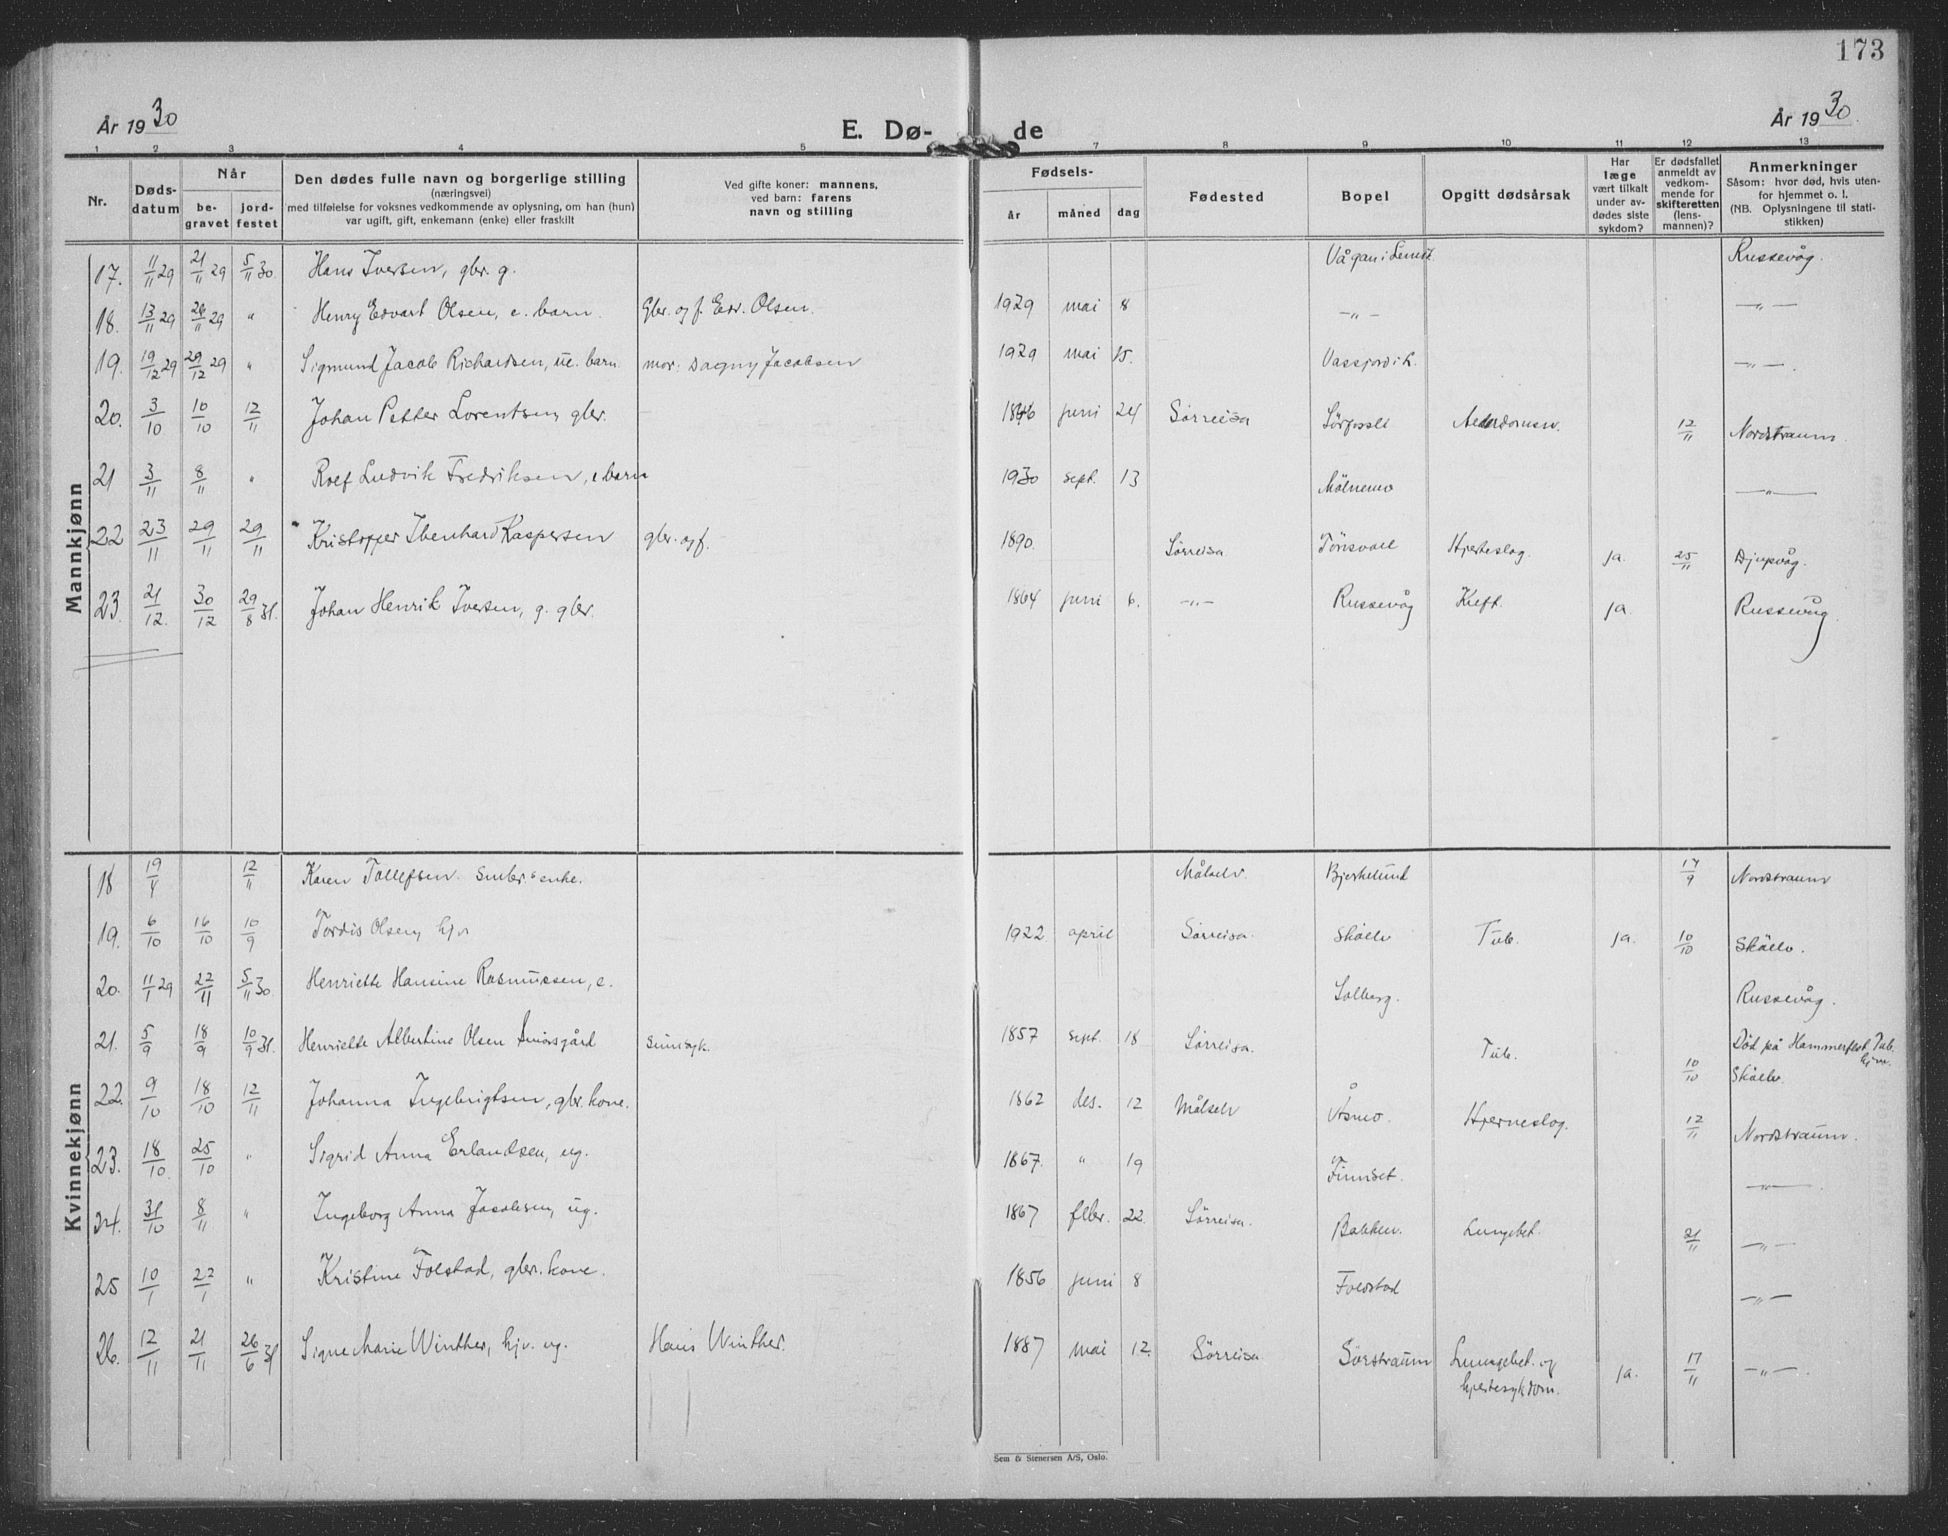 173
År 1930
E. Dø-
de
År 1930.
1 2 3 4 5 7 8 9 10 11 12 13
Nr.
Døds-
datum
Når
be-
gravet
jord-
festet
Den dødes fulle navn og borgerlige stilling
(næringsvei)
med tilføielse for voksnes vedkommende av oplysning, om han (hun)
var ugift, gift, enkemann (enke) eller fraskilt
Ved gifte koner: mannens,
ved barn: farens
navn og stilling
Fødsels-
år
måned
dag
Fødested
Bopel
Opgitt dødsårsak
Har
læge
vært tilkalt
under av-
dødes siste
sykdom?
Er dødsfallet
anmeldt av
vedkom-
mende for
skifteretten
(lens-
mannen)?
Anmerkninger
Såsom: hvor død, hvis uten-
for hjemmet o. l.
(NB. Oplysningene til stati-
stikken)
Mannkjønn
17. 11/11 29 21/11 29 5/11 30. Hans Iversen, gbr. g. Vågan i Lenvik. Russevåg.
18. 13/11 29 26/11 29 " Henry Edvart Olsen, e. barn. Gbr. og f. Edv. Olsen. 1929 mai 8 —"— —"—
19. 19/12 29 29/12 29 " Sigmund Jacob Richardsen, ue. barn mor: Dagny Jacobsen 1929 mai 15. Vassjordvik. —"—.
20. 3/10 10/10 12/11 Johan Petter Lorentsen, gbr. 1846 juni 24 Sørreisa 12/11 Nordstraum.
21 3/11 8/11 " Rolf Ludvik Fredriksen, e barn 1930 sept. 13 Mølnemo —"—
22 23/11 29/11 29/11 Kristoffer Ibenhard Kaspersen gbr. og f. 1890. Sørreisa Tønsvoll Hjerteslag. ja. 25/11 Djupvåg.
23. 21/12. 30/12 29/8 31. Johan Henrik Iversen, g. gbr. 1864 juni 6. —"— Russevåg Kreft. ja. Russevåg.
Kvinnekjønn
18 19/4 12/11 Karen Tollefsen. Småbr.s enke. Målselv. Bjerkelund 17/9 Nordstraum
19. 6/10 16/10 10/9 Tordis Olsen, hjv 1922 april Sørreisa. Skøelv Tub. ja. 10/10 Skøelv.
20. 11/1 29 22/11 5/11 30 Henriette Hansine Rasmussen, e. Solberg. Russevåg.
21. 5/9 18/9 10/9 31. Henriette Albertine Olsen Smørsgård sinnsyk. 1857 sept. 18 Sørreisa. Tub. 10/10 Død på Hammerfest Tub. hjem.
Skøelv.
22. 9/10 18/10 12/11 Johanna Ingebrigtsen, gbr. kone. 1862 des. 12 Målselv Åsmo Hjerneslag. 12/11 Nordstraum.
23. 18/10. 25/10 " Sigrid Anna Erlandsen, ug. 1867. " 19 Finnset. —"—
24. 31/10 8/11 " Ingeborg Anna Jacobsen, ug. 1867 febr. 22. Sørreisa. Bakken. Lungebet. 21/11 —"—
25 10/1 22/1 " Kristine Foldstad, gbr. kone. 1856 juni 8 Foldstad —"—
26. 12/11 21/11 26/6 31 Signe Marie Winther, hjv. ug. Hans Winther. 1887 mai 12. Sørreisa Sørstraum Lungebet. og
hjertesykdom. ja. 17/11 —"—.
Sem & Stenersen A/S, Oslo.